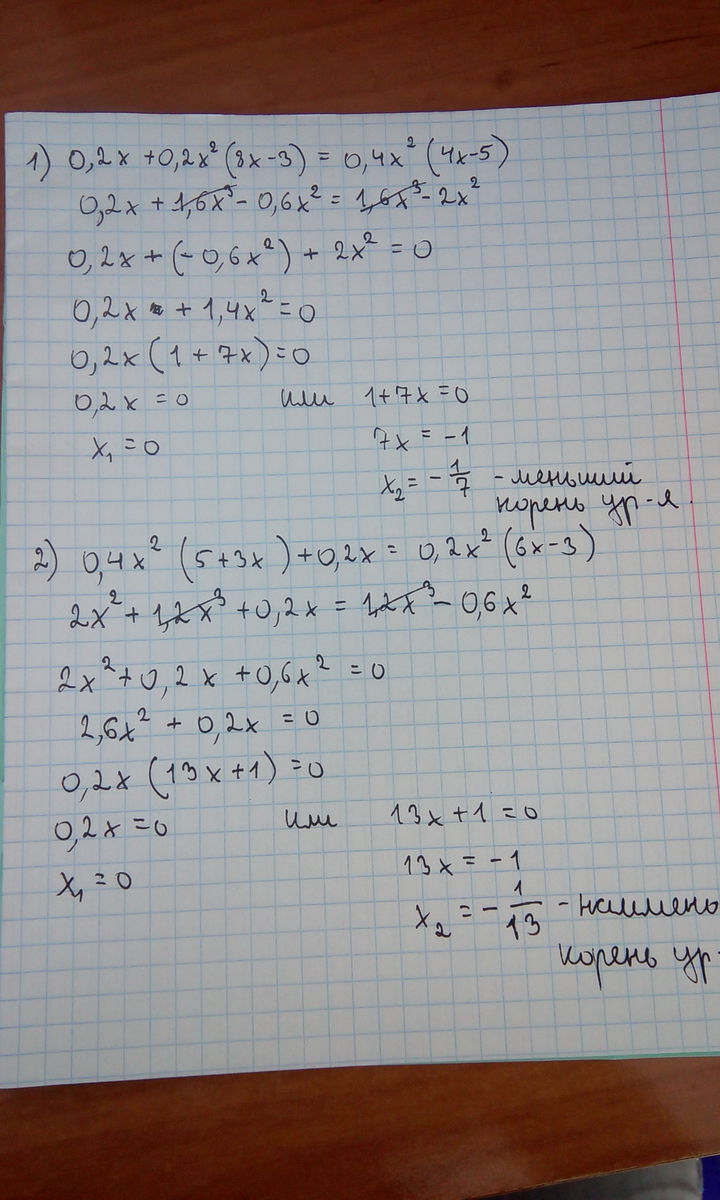 1) 0,2x + 0,2x² (8x-3) = 0,4x² (4x-5)
0,2x + 1,6x³ - 0,6x² = 1,6x³ - 2x²
0,2x + (- 0,6x²) + 2x² = 0
0,2x + 1,4x² = 0
0,2x (1 + 7x) = 0
0,2x = 0 или 1+7x = 0
x₁ = 0 7x = -1
x₂ = - 1/7 - меньший
корень ур-я.
2) 0,4x² (5+3x) + 0,2x = 0,2x² (6x-3)
2x² + 1,2x³ + 0,2x = 1,2x³ - 0,6x²
2x² + 0,2x + 0,6x² = 0
2,6x² + 0,2x = 0
0,2x (13x+1) = 0
0,2x = 0 или 13x + 1 = 0
x₁ = 0 13x = -1
x₂ = - 1/13 - наимень
корень ур-